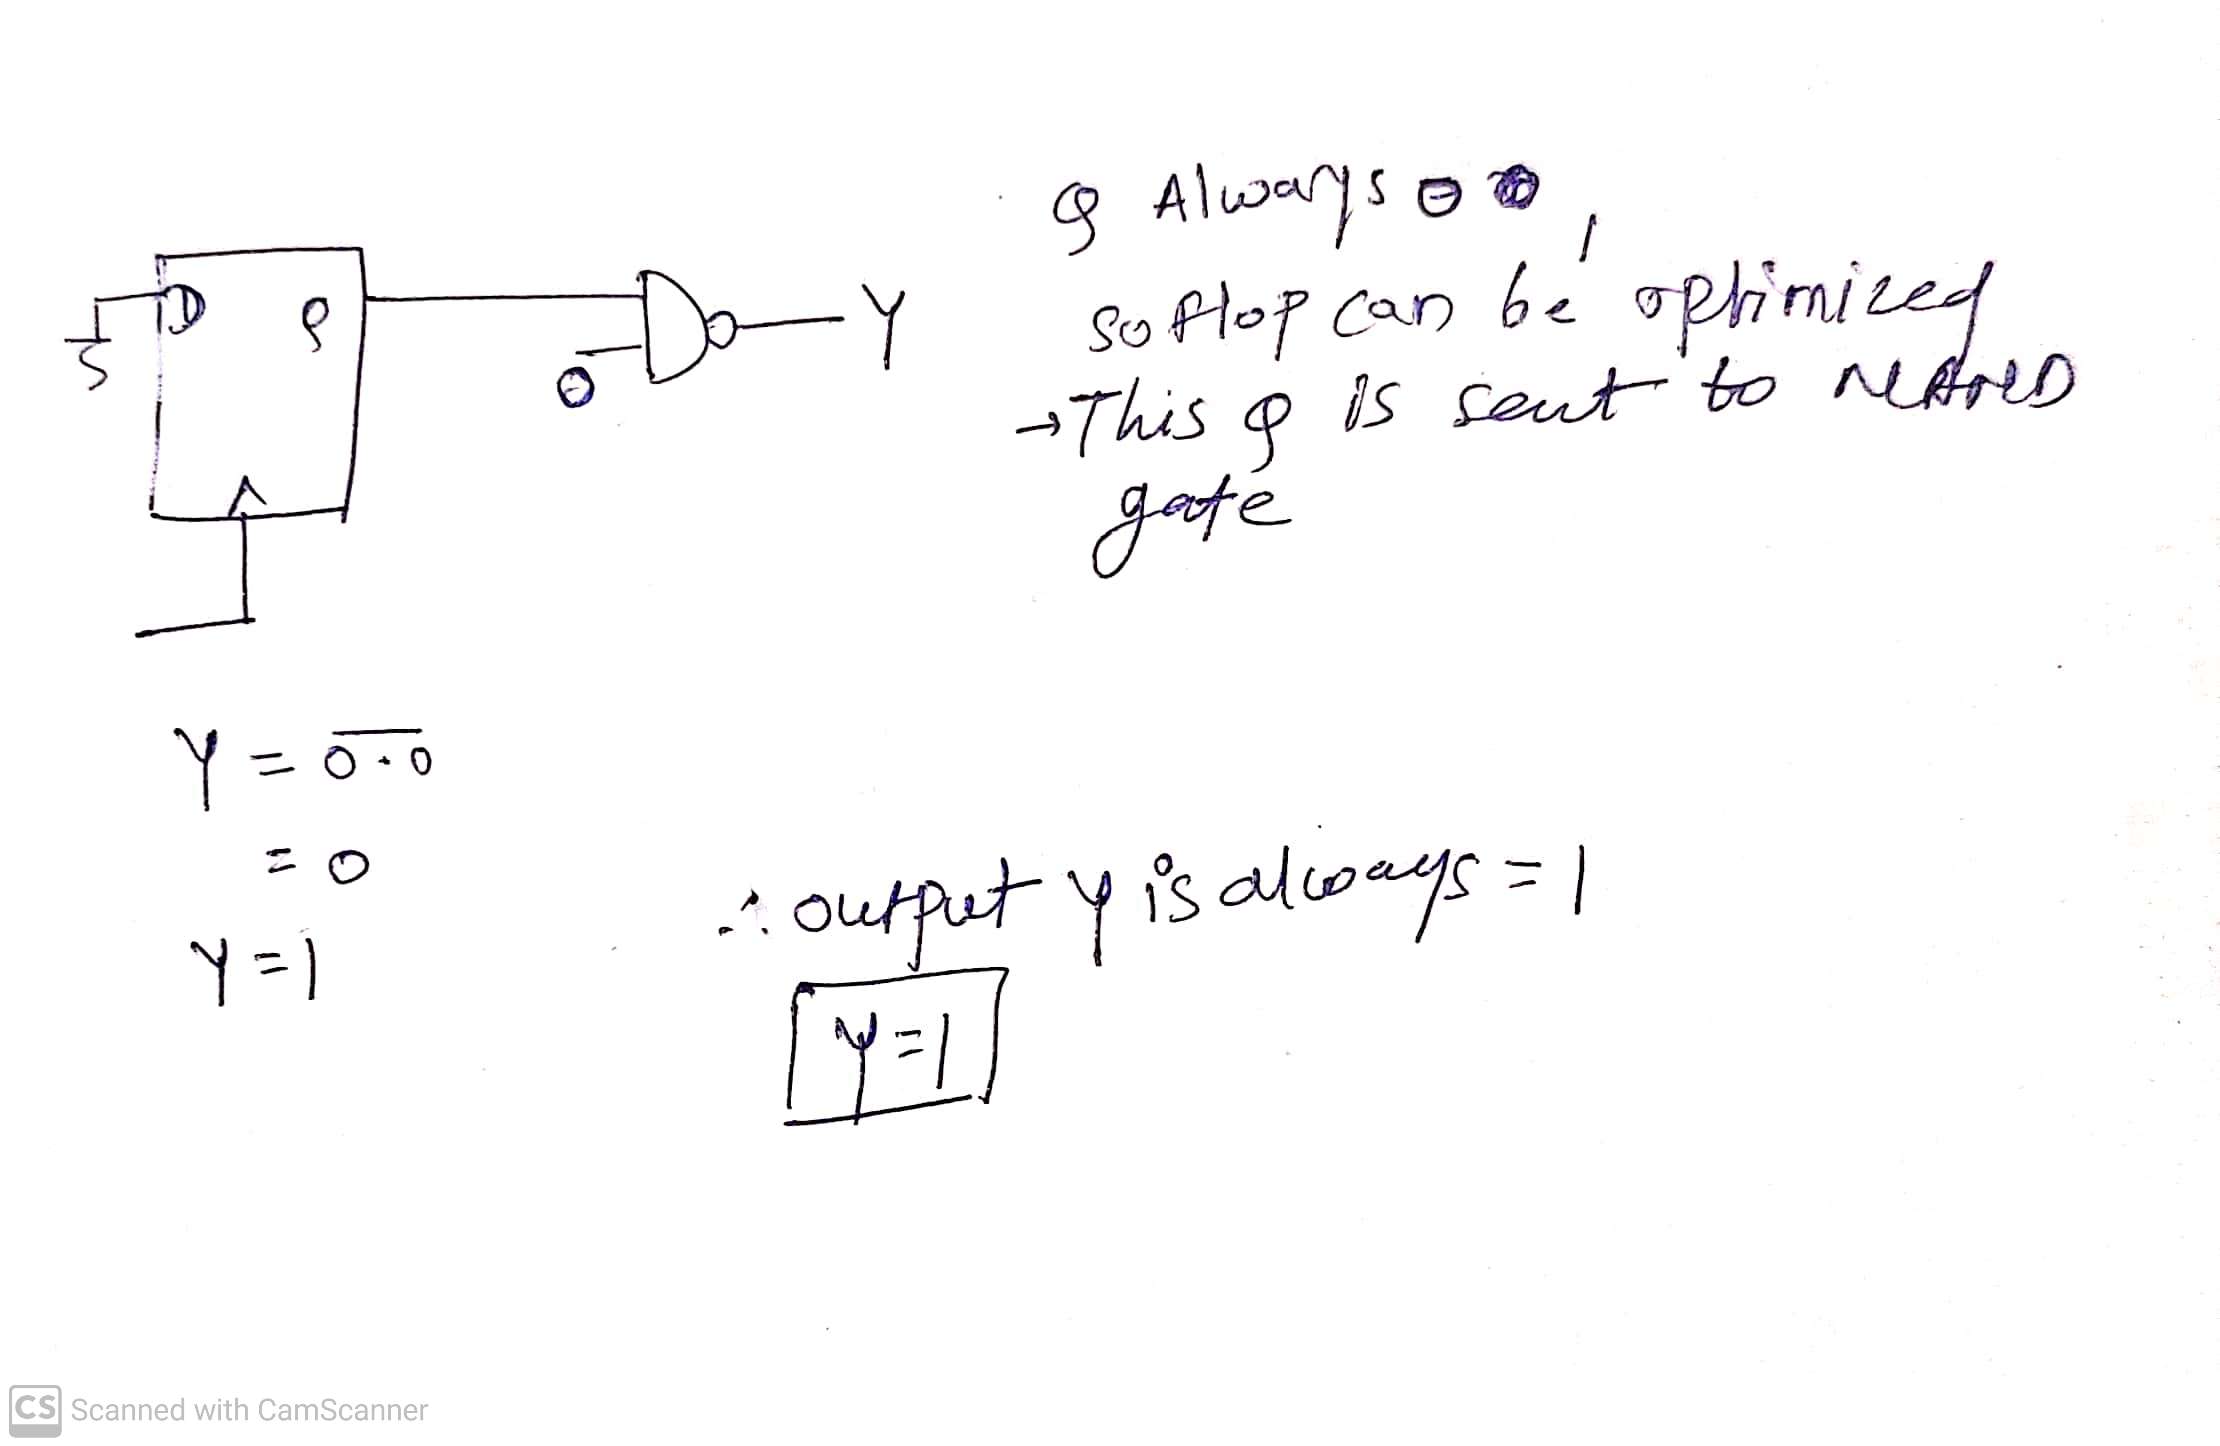 Q Always 0
D Q
Y
0
so flop can be optimized
→ This Q is sent to NAND
gate
Y = \overline{0.0}
= 0
Y = 1
∴ output y is always = 1
Y = 1
CS Scanned with CamScanner